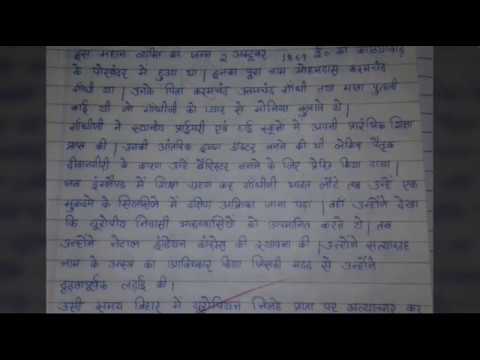 इस महान व्यक्ति का जन्म 2 अक्टूबर 1869 ई० को काठियावाड़
के पोरबंदर में हुआ था। इनका पूरा नाम मोहनदास करमचंद
गाँधी था। उनके पिता करमचंद उत्तमचंद गाँधी तथा माता पुतली
बाई थी जो गाँधीजी को प्यार से मोनिया बुलाते थे।
गाँधीजी ने स्थानीय प्राईमरी एवं हाई स्कूलों में अपनी प्रारंभिक शिक्षा
प्राप्त की। उनकी आंतरिक इच्छा डॉक्टर बनने की थी लेकिन पैतृक
दीवानगीरी के कारण उन्हें बैरिस्टर बनने के लिए प्रेरित किया गया।
जब इंग्लैण्ड में शिक्षा ग्रहण कर गाँधीजी भारत लौटे तब उन्हें एक
मुकदमे के सिलसिले में दक्षिण अफ्रिका जाना पड़ा। वहाँ उन्होंने देखा
कि यूरोपीय निवासी भारतवासियों को अपमानित करते थे। तब
उन्होंने नेटाल इंडियन कांग्रेस की स्थापना की। उन्होंने सत्याग्रह
नाम के अस्त्र का आविष्कार किया जिसकी मदद से उन्होंने
दृढ़तापूर्वक लड़ाई की।
उसी समय बिहार में यूरोपियन निलहे प्रजा पर अत्याचार कर